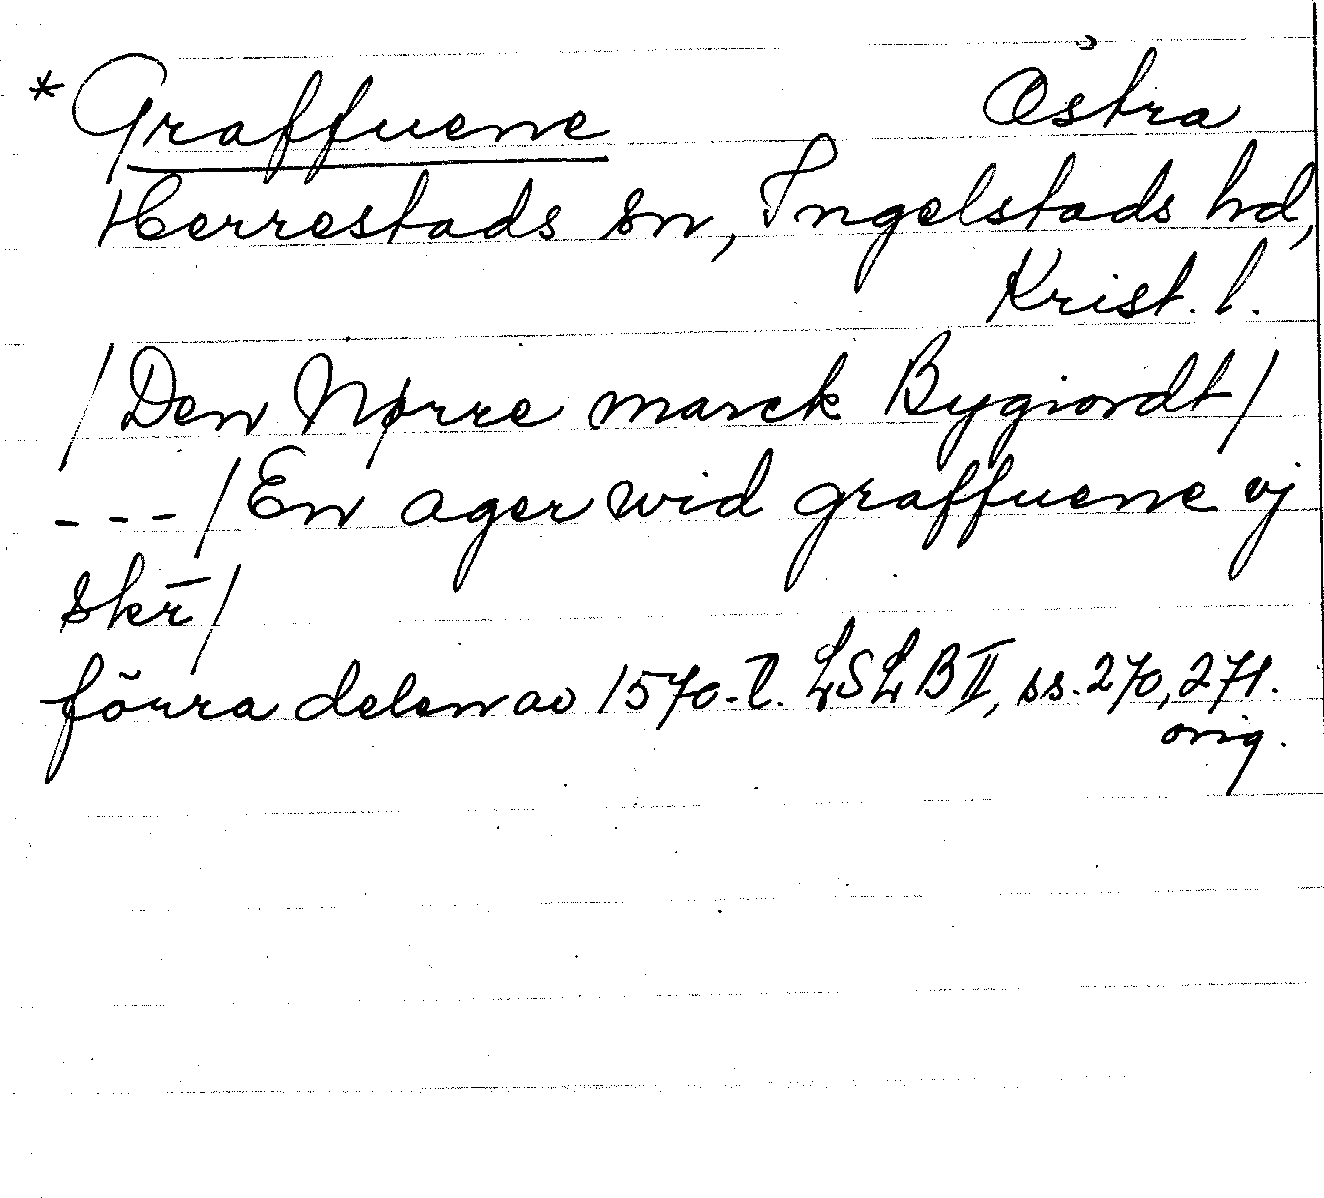 * Graffuene Östra
Herrestads sn, Ingelstads hd,
Krist. l.
/Den Nørre marck Bygiordt/
---/En ager wid graffuene vj
skr̄/
förra delen av 1570-t. LSLB II, ss. 270, 271.
orig.